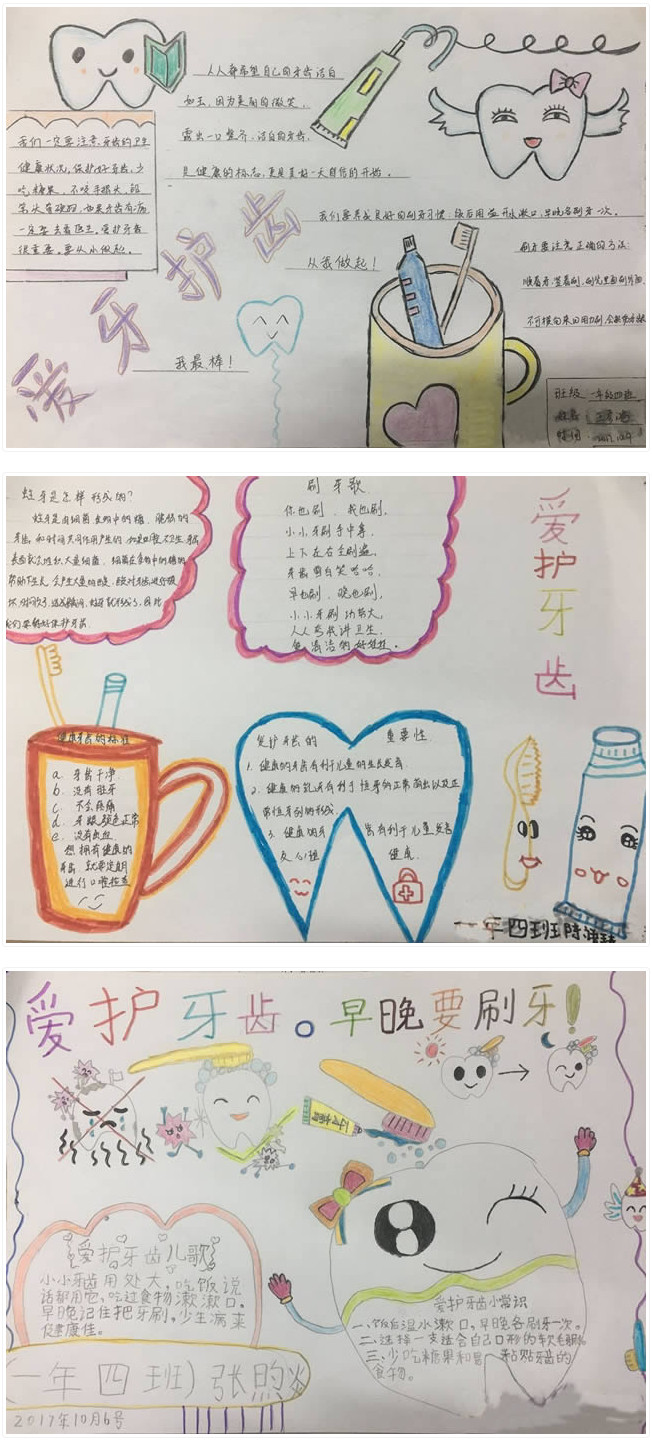 人人都希望自己的牙齿洁白
如玉,因为美丽的微笑,
露出一口整齐、洁白的牙齿,
是健康的标志,更是美好一天自信的开始。
我们一定要注意牙齿的卫生
健康状况,保护好牙齿,少
吃糖果,不咬手指头、铅
笔头等硬物,如果牙齿有病
一定要去看医生。爱护牙齿
很重要。要从小做起。
我们要养成良好的刷牙习惯,饭后用温开水漱口,早晚各刷牙一次。
从我做起!
刷牙要注意正确的方法:
顺着牙
不可横向来回用力刷,
爱牙护齿
我最棒!
班级 一年级四班
蛀牙是怎样形成的?
蛀牙是由细菌 食物中的糖、脆弱的
牙齿,和时间共同作用产生的。如果口腔不卫生,牙齿
表面就会堆积大量细菌,细菌在食物中的糖的
帮助下生长,会产生大量的酸,
们要好好保护牙齿
刷牙歌
你也刷、我也刷,
小小牙刷手中拿,
上下左右全刷遍,
牙齿雪白笑哈哈,
早也刷、晚也刷,
小小牙刷功劳大,
人人夸我讲卫生,
爱护牙齿
健康牙齿的标准
a. 牙齿干净
b. 没有蛀牙
c. 不会疼痛
d. 牙龈颜色正常
e. 没有出血
想拥有健康的
牙齿,就要定期
进行口腔检查
爱护牙齿的 重要性
1. 健康的牙齿有利于儿童的生长发育.
2. 健康的乳牙有利于恒牙的正常萌出以及正
常恒牙列的形成.
3. 健康的牙 齿有利于儿童发音
及心理 健康.
一年四班陈
爱护牙齿。早晚要刷牙!
牙膏
爱护牙齿儿歌
小小牙齿用处大,吃饭说
话都用它,吃过食物漱漱口。
早晚记住把牙刷,少生病来
健康佳。
爱护牙齿小常识
一、饭后温水漱口,早晚各刷牙一次。
二、选择一支适合自己口形的软毛
三、少吃糖果和易 粘贴牙齿的
食物。
(一年四班)张煦
2017年10月6号